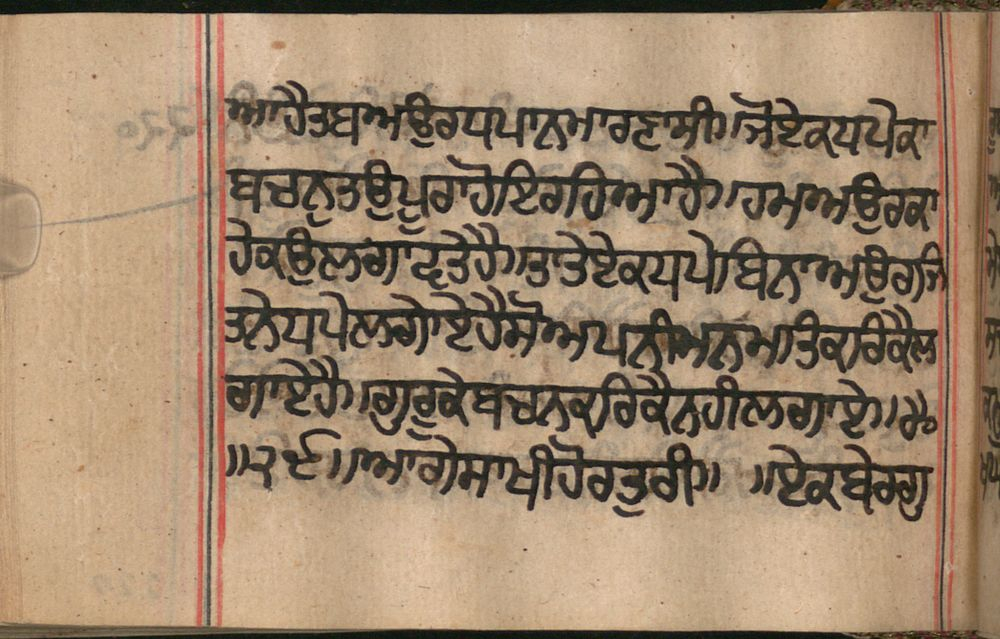 ਆਹੈਤਬਅਉਰਧਪਾਨਮਾਰਣਾਸੀ॥ਜੋਏਕਧਪੇਕਾ
ਬਚਨੁਤਉਪੂਰਾਹੋਇਰਹਿਆਹੈ॥ਹਮਅਉਰਕਾ
ਹੇਕਉਲਗਾਵਤੇਹੈ॥ਤਾਤੇਏਕਧਪੇਬਿਨਾਅਉਰਜਿ
ਤਨੇਧਪੇਲਗਾਏਹੈਸੋਅਪਨੀਮਨਮਤਿਕਰਿਕੈਲ
ਗਾਏਹੈ॥ਗੁਰੂਕੇਬਚਨਕਰਿਕੈਨਹੀਲਗਾਏ॥
॥੨੯॥ਆਗੇਸਾਖੀਹੋਰਤੁਰੀ॥ ॥ਏਕਬੇਰਗੁ